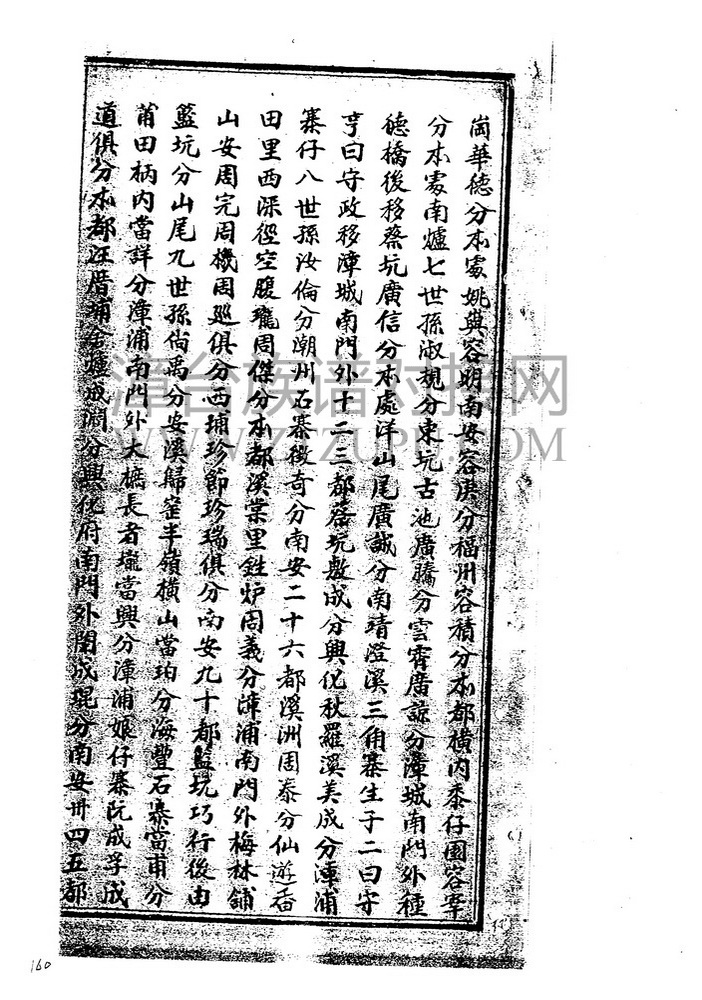 崗華德分本處姚興容明南安容洪分福州容積分本都橫內黍仔園容宰
分本處南爐七世孫淑規分東坑古池廣騰分雲霄廣諒分漳城南門外種
德橋後移蔡坑廣信分本處洋山尾廣誠分南靖澄溪三角寨生子二曰守
亨曰守政移漳城南門外十二三都蓓坑敷成分興化秋羅溪美成分漳浦
寨仔八世孫汝倫分潮州石寨徵奇分南安二十六都溪洲周泰分仙遊香
田里西深徑空腹瓏周傑分本都溪棠里鉎炉周義分漳浦南門外梅林鋪
山安周完周機周廵俱分西埔珍節珍瑞俱分南安九十都藍坑巧行後由
籃坑分山尾九世孫尙禹分安溪歸窰半嶺橫山當珀分海豐石寨當甫分
莆田柄內當詳分漳浦南門外大㯍長者壠當興分漳浦娘仔寨阮成孚成
道俱分本都汪厝埔仝爐成淵分興化府南門外開成琨分南安卅四五都
漳台族谱对接网
WWW.ZTZUPU.COM
160